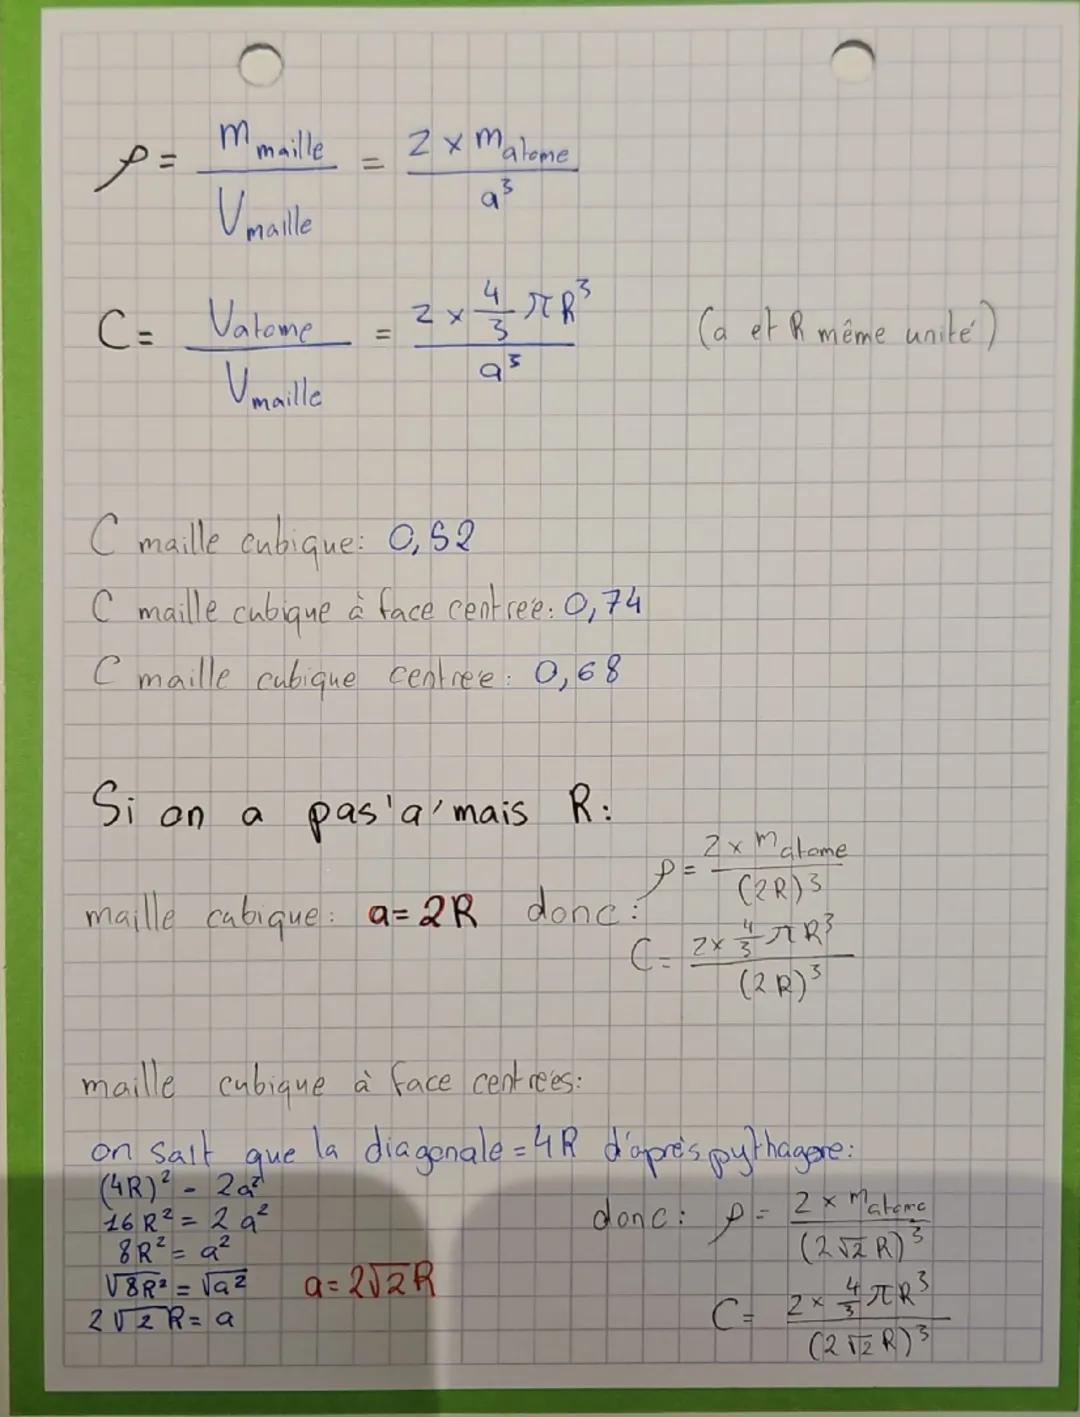 ρ = m maille / V maille = 2 × m atome / a³
C = V atome / V maille = 2 × 4/3 π R³ / a³ (a et R même unité)
C maille cubique: 0,52
C maille cubique à face centrée: 0,74
C maille cubique centrée: 0,68
Si on a pas 'a' mais R:
maille cubique: a = 2R donc:
ρ = 2 × m atome / (2R)³
C = 2 × 4/3 π R³ / (2R)³
maille cubique à face centrées:
on sait que la diagonale = 4R d'après pythagore:
(4R)² = 2a²
16R² = 2a²
8R² = a²
√8R² = √a²
2√2 R = a
a = 2√2 R
donc: ρ = 2 × m atome / (2√2 R)³
C = 2 × 4/3 π R³ / (2√2 R)³